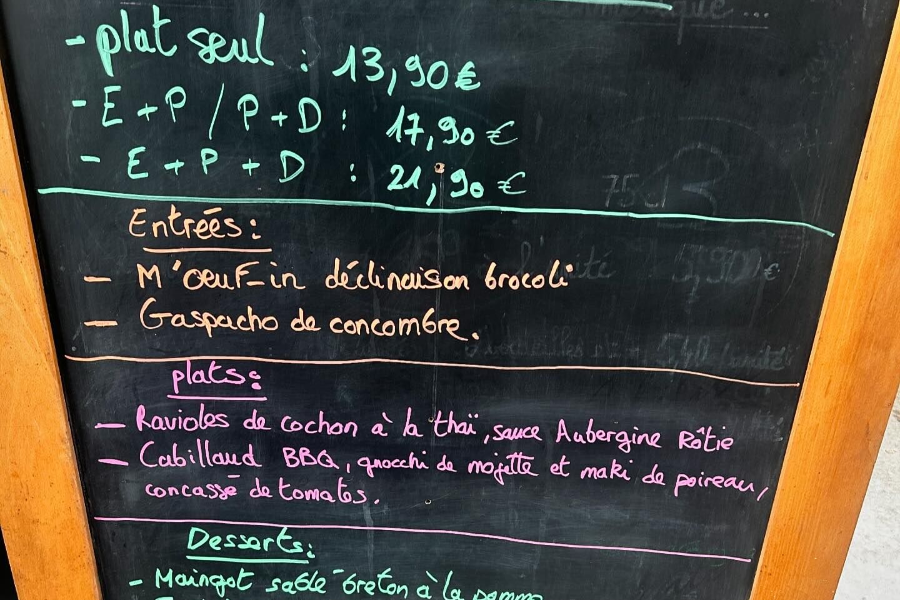 - plat seul : 13,90€
- E+P / P+D : 17,90 €
- E + P + D : 21,90 €
Entrées:
- M'oeuf-in déclinaison brocoli
- Gaspacho de concombre.
plats:
- Ravioles de cochon à la thaï, sauce Aubergine Rôtie
- Cabillaud BBQ, gnocchi de mojette et maki de poireau,
concassé de tomates.
Desserts:
- Maingot sablé breton à la pomme